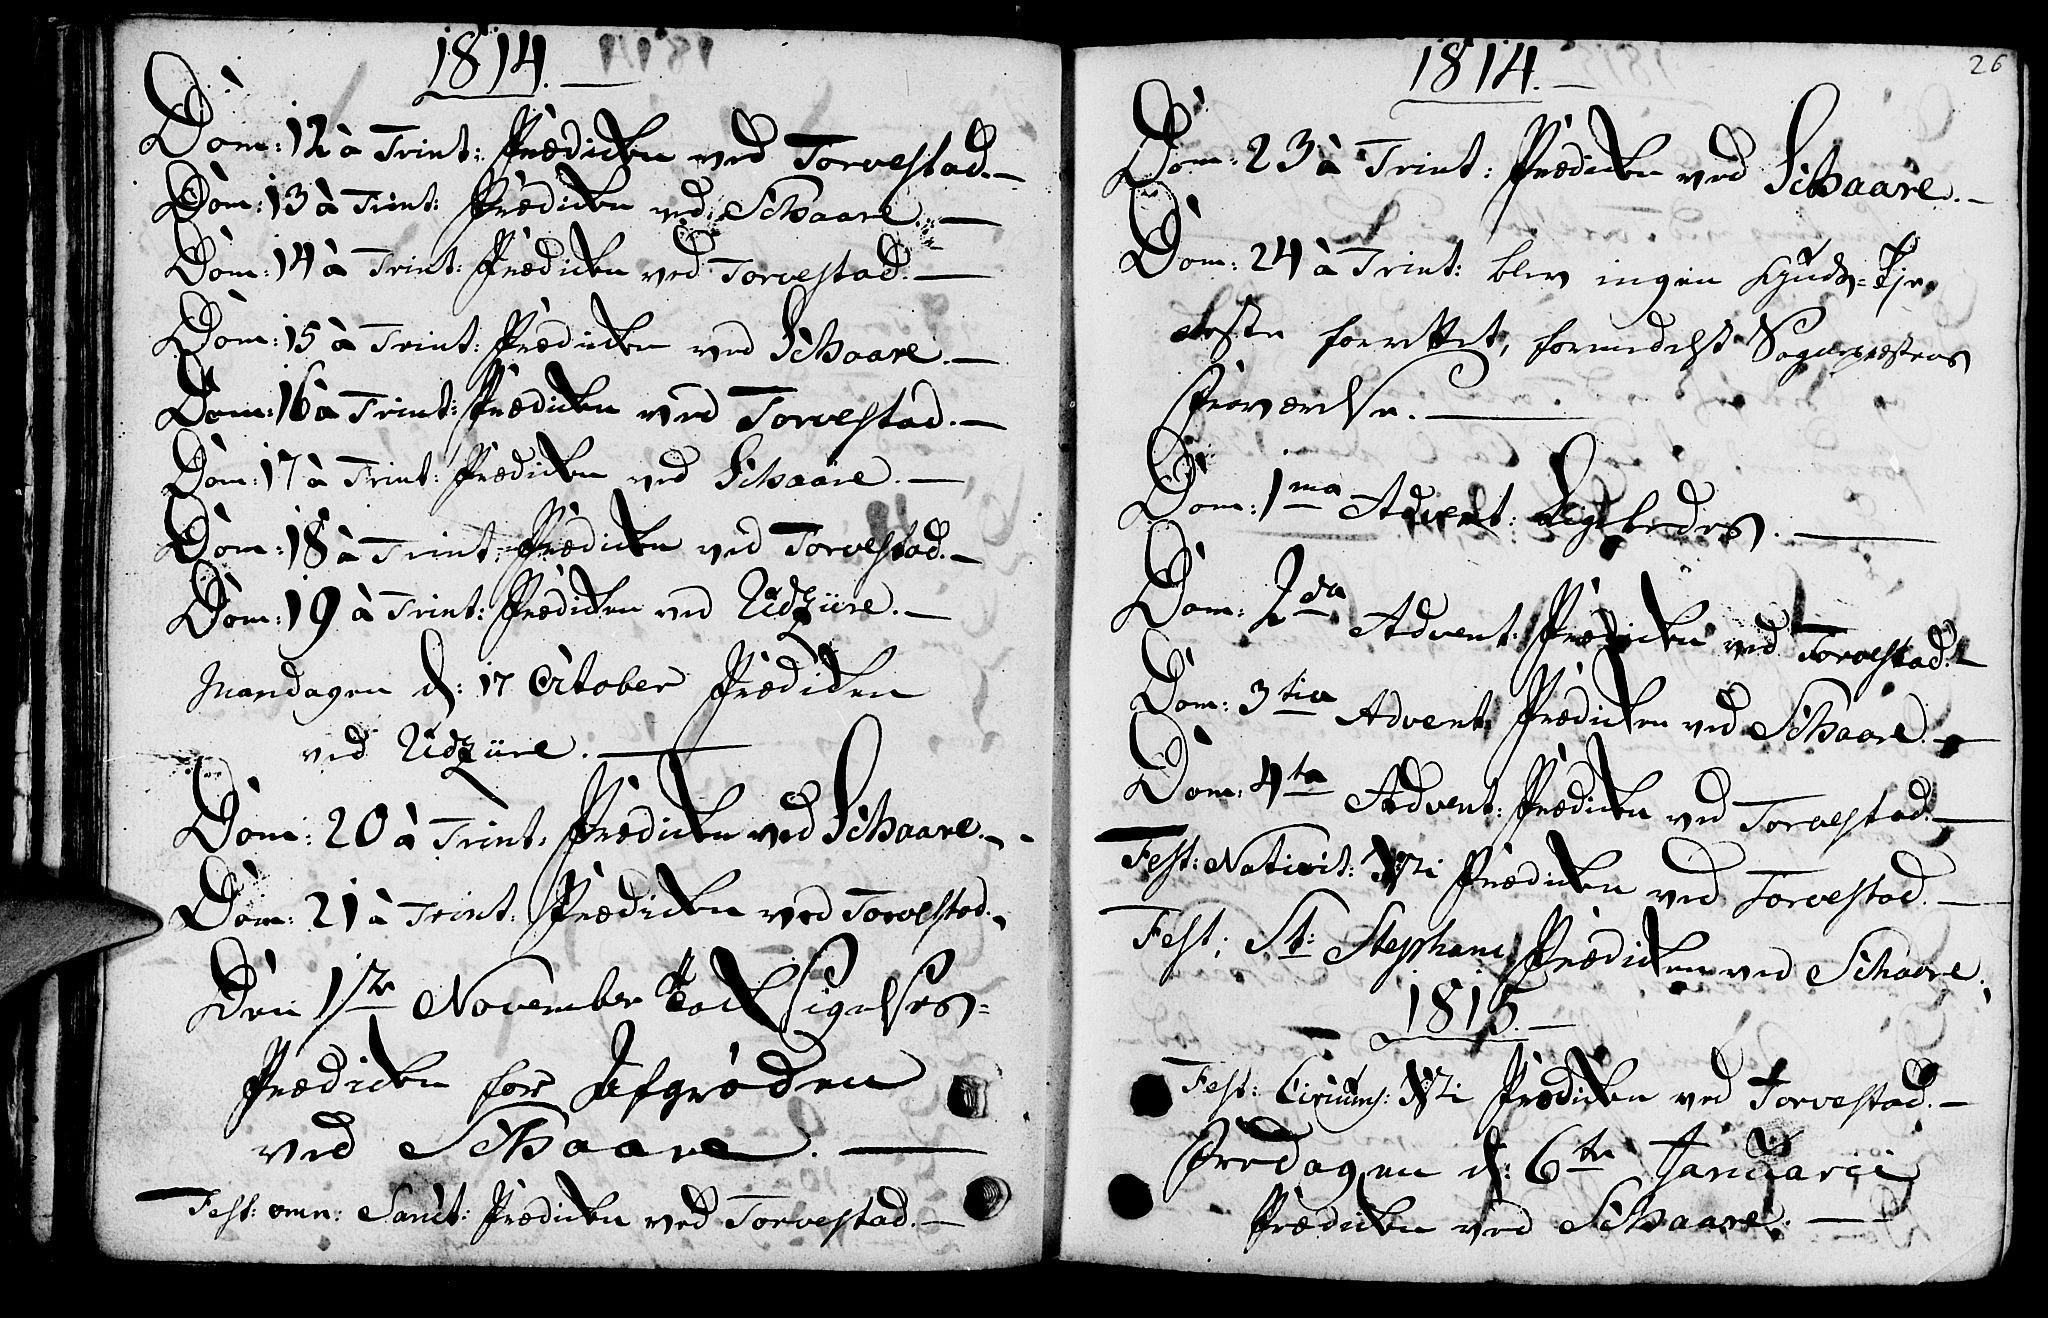 1814.
Dom: 12 à Trint: Prædiken ved Torvestad.
Dom: 13 à Trint: Prædiken ved Schaare.
Dom: 14 à Trint: Prædiken ved Torvestad.
Dom: 15 à Trint: Prædiken ved Schaare.
Dom: 16 à Trint: Prædiken ved Torvestad.
Dom: 17 à Trint: Prædiken ved Schaare.
Dom: 18 à Trint: Prædiken ved Torvestad.
Dom: 19 à Trint: Prædiken ved Udzüre.
Mandagen d: 17 October Prædiken
ved Udzüre.
Dom: 20 à Trint: Prædiken ved Schaare.
Dom: 21 à Trint: Prædiken ved Torvestad.
Den 1ste November Tacksigelses-
Prædiken for Afgrøden
ved Schaare.
Fest: omn: Sanct: Prædiken ved Torvestad.
1814.
26
Dom: 23 à Trint: Prædiken ved Schaare.
Dom: 24 à Trint: blev ingen Guds-Tje-
neste forrettet, formedelst Sognepræstens
Fraværelse.
Dom: 1ma Advent: Ligeledes.
Dom: 2da Advent: Prædiken ved Torvestad.
Dom: 3tia Advent: Prædiken ved Schaare.
Dom: 4ta Advent: Prædiken ved Torvestad.
Fest: Nativit: Xti Prædiken ved Torvestad.
Fest: St: Stephani Prædiken ved Schaare.
1815.
Fest: Circums: Xti Prædiken ved Torvestad.
Fredagen d: 6te Januarii
Prædiken ved Schaare.